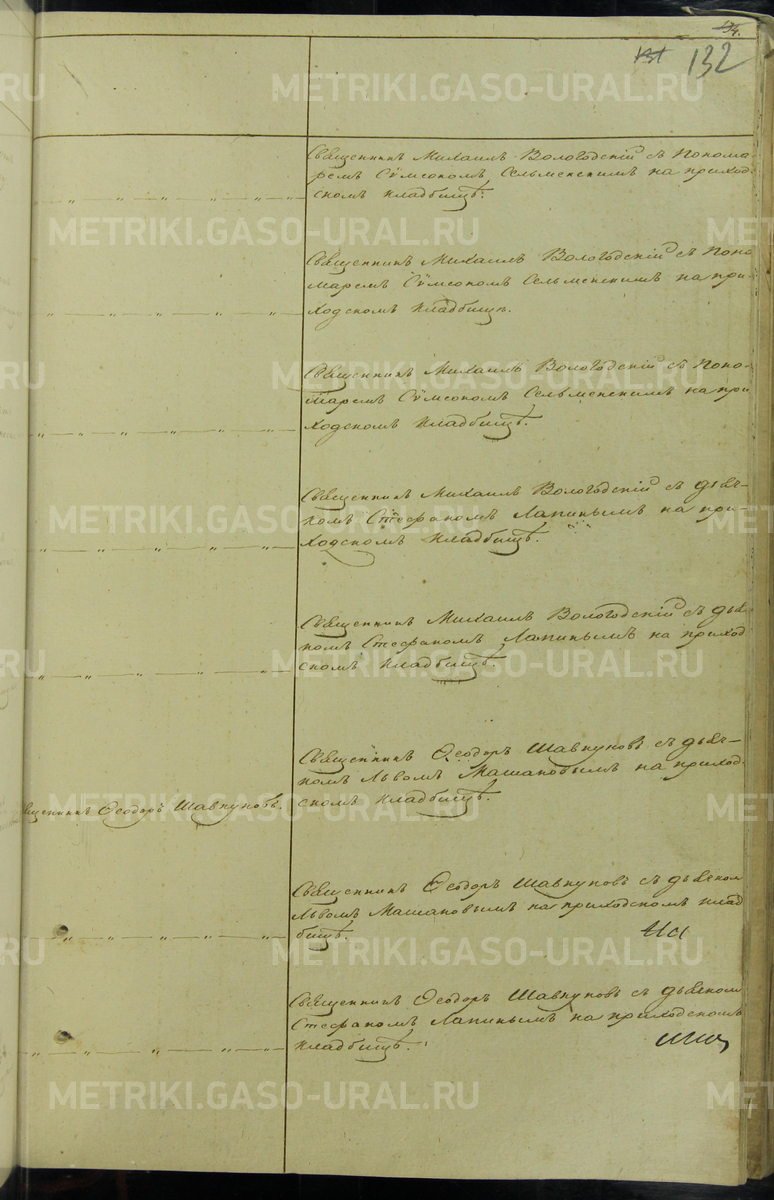 134.
131 132
Священникъ Михаилъ Вологодскій съ Понома-
ремъ Сѵмеономъ Сельменскимъ на приход-
скомъ кладбищѣ.
Священникъ Михаилъ Вологодскій съ Поно
маремъ Сѵмеономъ Сельменскимъ на при-
ходскомъ кладбищѣ.
Священникъ Михаилъ Вологодскій съ Поно-
маремъ Сѵмеономъ Сельменскимъ на при
ходскомъ кладбищѣ.
Священникъ Михаилъ Вологодскій съ дьяч-
комъ Стефаномъ Лапинымъ на при-
ходскомъ кладбищѣ.
Священникъ Михаилъ Вологодскій съ дья-
комъ Стефаномъ Лапинымъ на приход
скомъ кладбищѣ.
Священникъ Ѳеодоръ Шавкуновъ съ дьяч-
комъ Львомъ Машановымъ на приход-
щенникъ Ѳеодоръ Шавкуновъ. скомъ кладбищѣ.
Священникъ Ѳеодоръ Шавкуновъ съ дьячком
Львомъ Машановымъ на приходскомъ клад
бищѣ.
Священникъ Ѳеодоръ Шавкуновъ съ дьячком
Стефаномъ Лапинымъ на приходскомъ
кладбищѣ.
METRIKI.GASO-URAL.RU